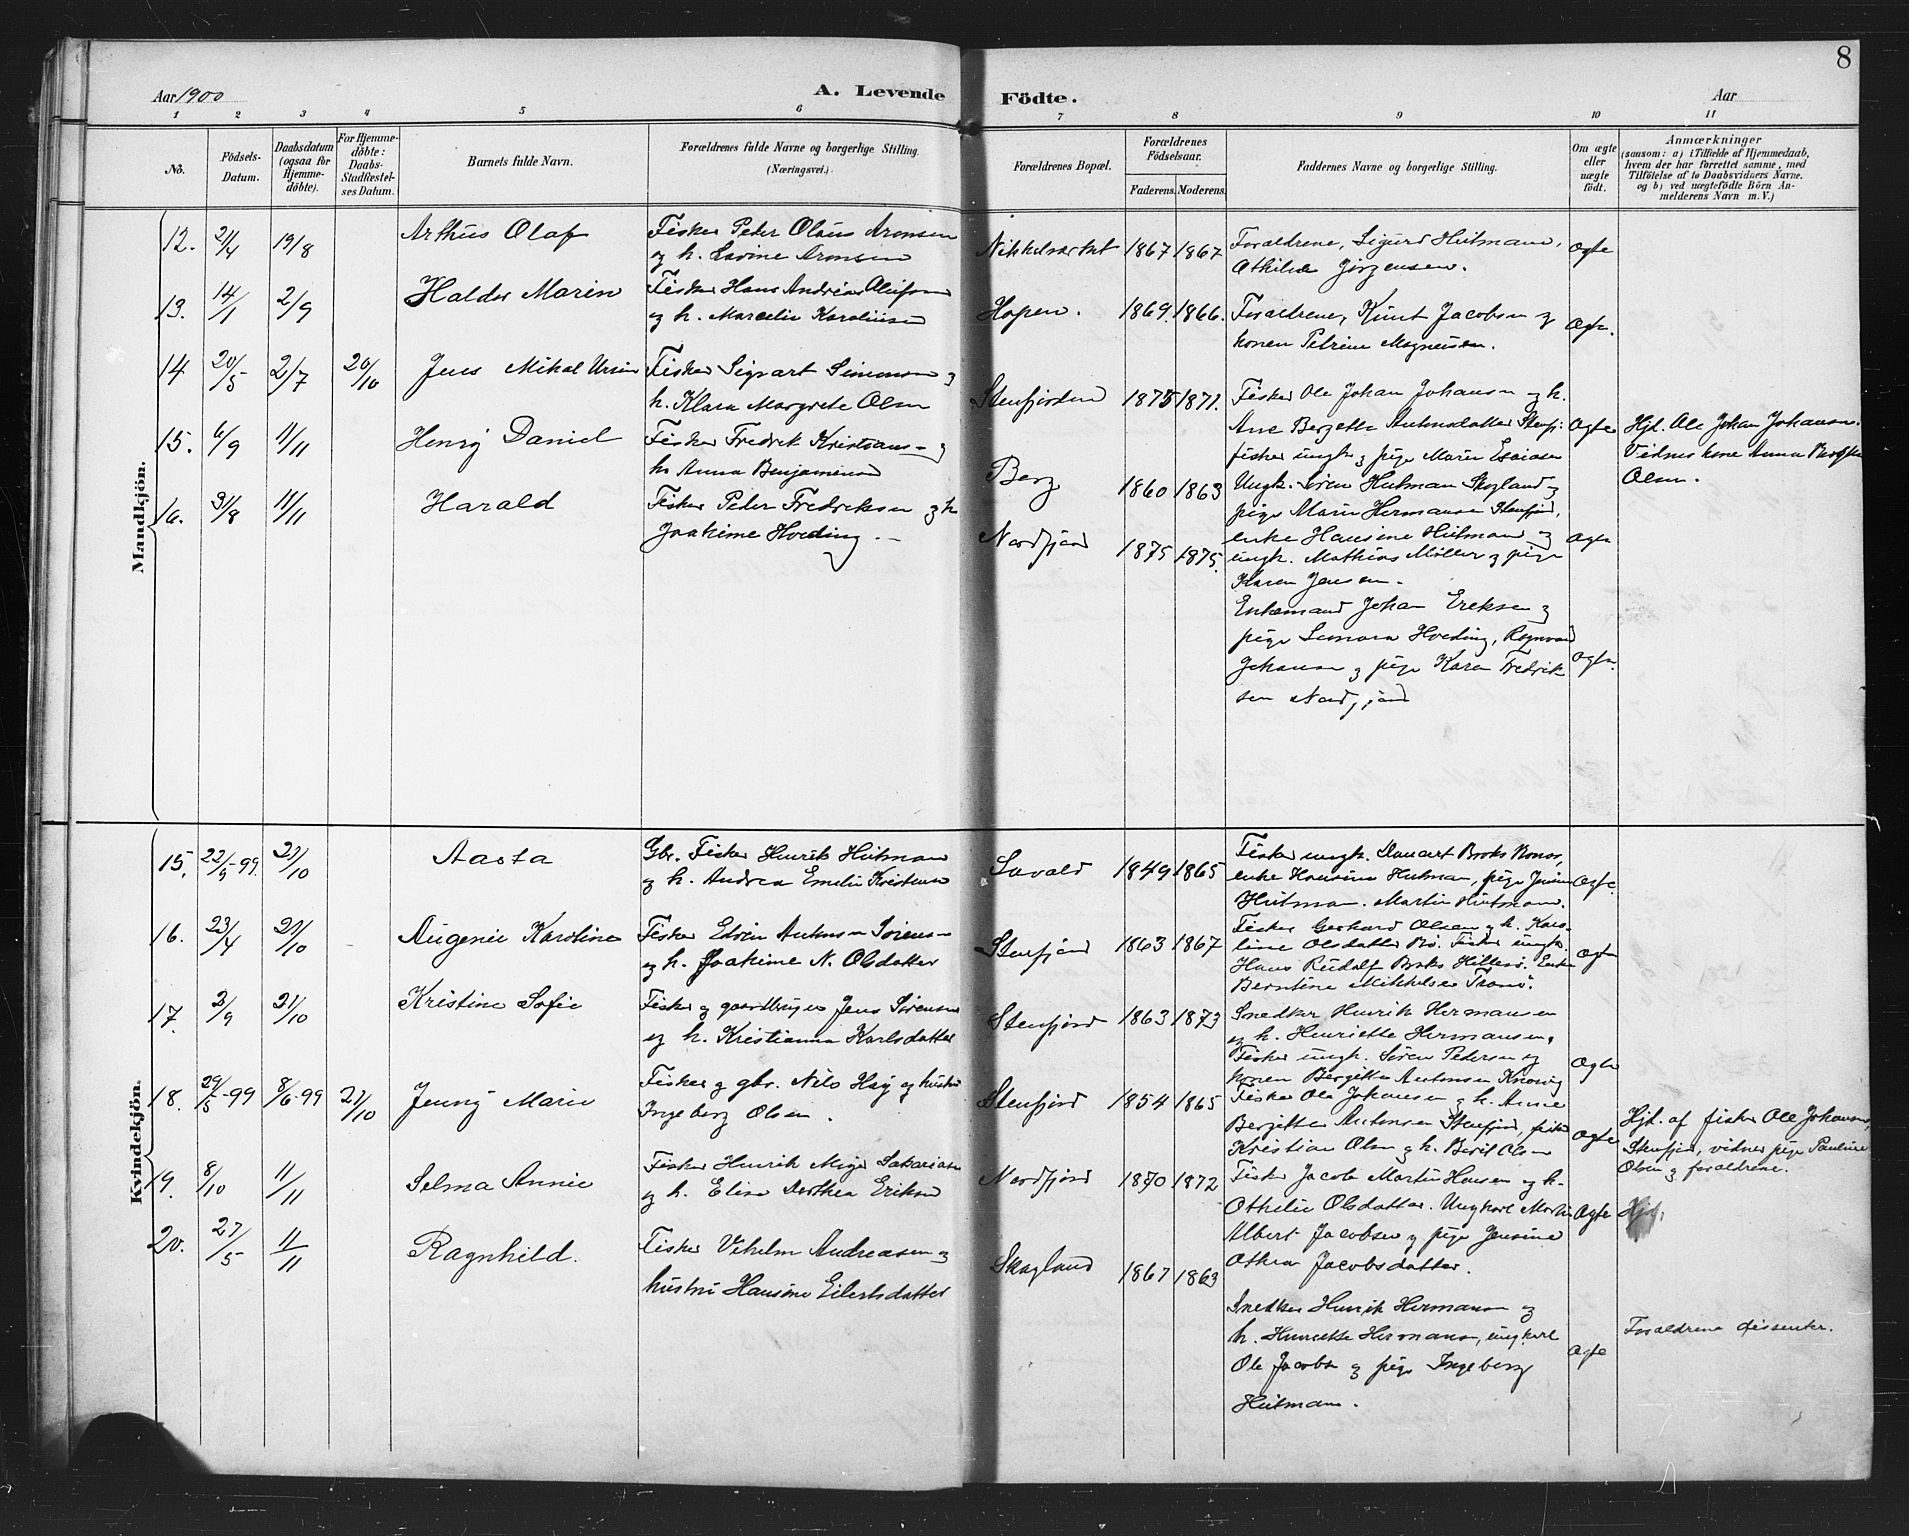 8
Aar 1900
A. Levende Födte.
Aar
1 2 3 4 5 6 7 8 9 10 11
No.
Födsels-Datum.
Daabsdatum (ogsaa for Hjemme-döbte).
For Hjemme-döbte: Daabs-Stadfæstel-ses Datum.
Barnets fulde Navn.
Forældrenes fulde Navne og borgerlige Stilling.
(Næringsvei.)
Forældrenes Bopæl.
Forældrenes Födselsaar.
Faderens. Moderens.
Faddernes Navne og borgerlige Stilling.
Om ægte eller uægte födt.
Anmærkninger
(saasom: a) i Tilfælde af Hjemmedaab,
hvem der har forrettet samme, med
Tilföielse af to Daabsvidners Navne,
og b) ved uægtefödte Börn An-
melderens Navn m. V.)
Mandkjön.
12. 21/4 19/8 Arthus Olaf
Fisker Peter Olaus Aronsen
og h. Lovine Aronsen
Nikkelværket 1867 1867
Forældrene, Sigurd Hutmann,
Othilie Jörgensen.
Ægte
13. 14/1 2/9 Haldor Marin
Fisker Hans Andreas Olufsen
og h. Marcelie Karoliusen
Hopen. 1869. 1866.
Forældrene, Knut Jacobsen og
konen Petrine Magnusen.
Ægte
14 20/5 2/7 20/10 Jens Mikal Ursin
Fisker Sigvart Simonsen og
h. Klara Margrete Olsen
Stenfjorden 1875 1871.
Fisker Ole Johan Johansen og h.
Ane Bergette Antonsdatter Stenfj.
fisker ungk. og pige Marie Esaiasen
Ægte
Hjd. Ole Johan Johansen.
Vidnes kone Anna Bergitte
Olsen.
15. 6/9 11/11 Henrÿ Daniel
Fisker Fredrik Kristians- og
h. Anna Benjaminsen
Berg 1860 1863
Ungk. Sören Hutman Skogland og
pige Marie Hermansen Stenfjord,
enke Hansine Hutmann og
ungk. Mathias Möller og pige
Karen Jensen.
Ægte
16. 31/8 11/11 Harald
Fisker Peter Fredriksen og h
Joakime Hveding.
Nordfjord 1875 1875.
Enkemand Johan Eriksen og
pige Lenora Hveding, Ragnvald
Johansen og pige Karen Fredrik
sen Nordfjord
Ægte
Kvindekjön.
15. 22/9-99. 21/10 Aasta
Gbr. Fisker Henrik Hutman
og h. Andrea Emelie Kristense
Lavold 1849 1865
Fisker ungk. Danart Broks Bonos,
enke Hansine Hutman, pige Jensine
Hutman. Martin Hutmann.
Ægte.
16. 23/4 21/10 Augenie Karoline
Fisker Edvin Antonsen Sörens-
og h. Joakime N. Olsdatter
Stenfjord 1863 1867
Fisker Gerhard Olsen og h. Karo-
line Olsdatter Bö. Fisker ungk.
Hans Rudolf Broks Hillesö. Enke
Berntine Mikkelsen Tromsö.
Ægte
17. 2/9 21/10 Kristine Sofie
Fisker og gaardbruger Jens Sörensen
og h. Kristianna Karlsdatter
Stenfjord 1863 1873
Snedker Henrik Hermansen
og h. Henriette Hermansen,
Fisker ungk. Sören Pedersen og
konen Bergitte Antonsen Knovig
Ægte
18. 29/5-99 8/6-99 21/10 Jennÿ Marie
Fisker og gbr. Nils Hay og hustru
Ingeborg Olsen.
Stenfjord 1854 1865
Fisker Ole Johansen og h. Anne
Bergitte Antonsen Stenfjord, fisker
Kristian Olsen og h. Berit Olsen
Ægte
Hjd. af fisker Ole Johansen,
Stenfjord, vidner pige Pauline
Olsen og forældrene.
19. 8/10 11/11 Selma Annie
Fisker Henrik Meyer Sakariasen
og h. Elise Dorthea Eriksen
Nordfjord 1870 1872
Fisker Jacob Martin Hansen og h.
Othilie Olsdatter. Ungkarl Martin
Albert Jacobsen og pige Jensine
Othea Jacobsdatter.
Ægte
Hjd.
20. 27/5 11/11 Ragnhild.
Fisker Vihelm Andreasen og
hustru Hansine Eilertsdatter
Skogland 1867 1863
Snedker Henrik Hermansen og
h. Henriette Hermans, ungkarl
Ole Jacobsen og pige Ingeborg
Hutmann.
Ægte
Forældrene dissenter.